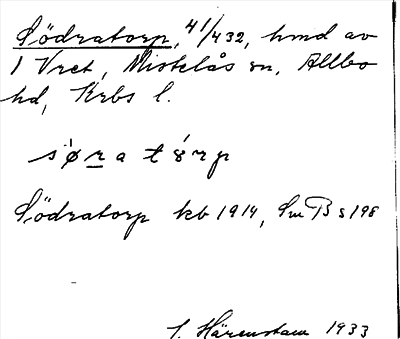 Södratorp, 41/432, hmd av
1 Vret, Mistelås sn, Allbo
hd, Krbs l.
s'ø r a t 8́ r p
Södratorp kb 1914, SmTB s 198
J. Härenstam 1933